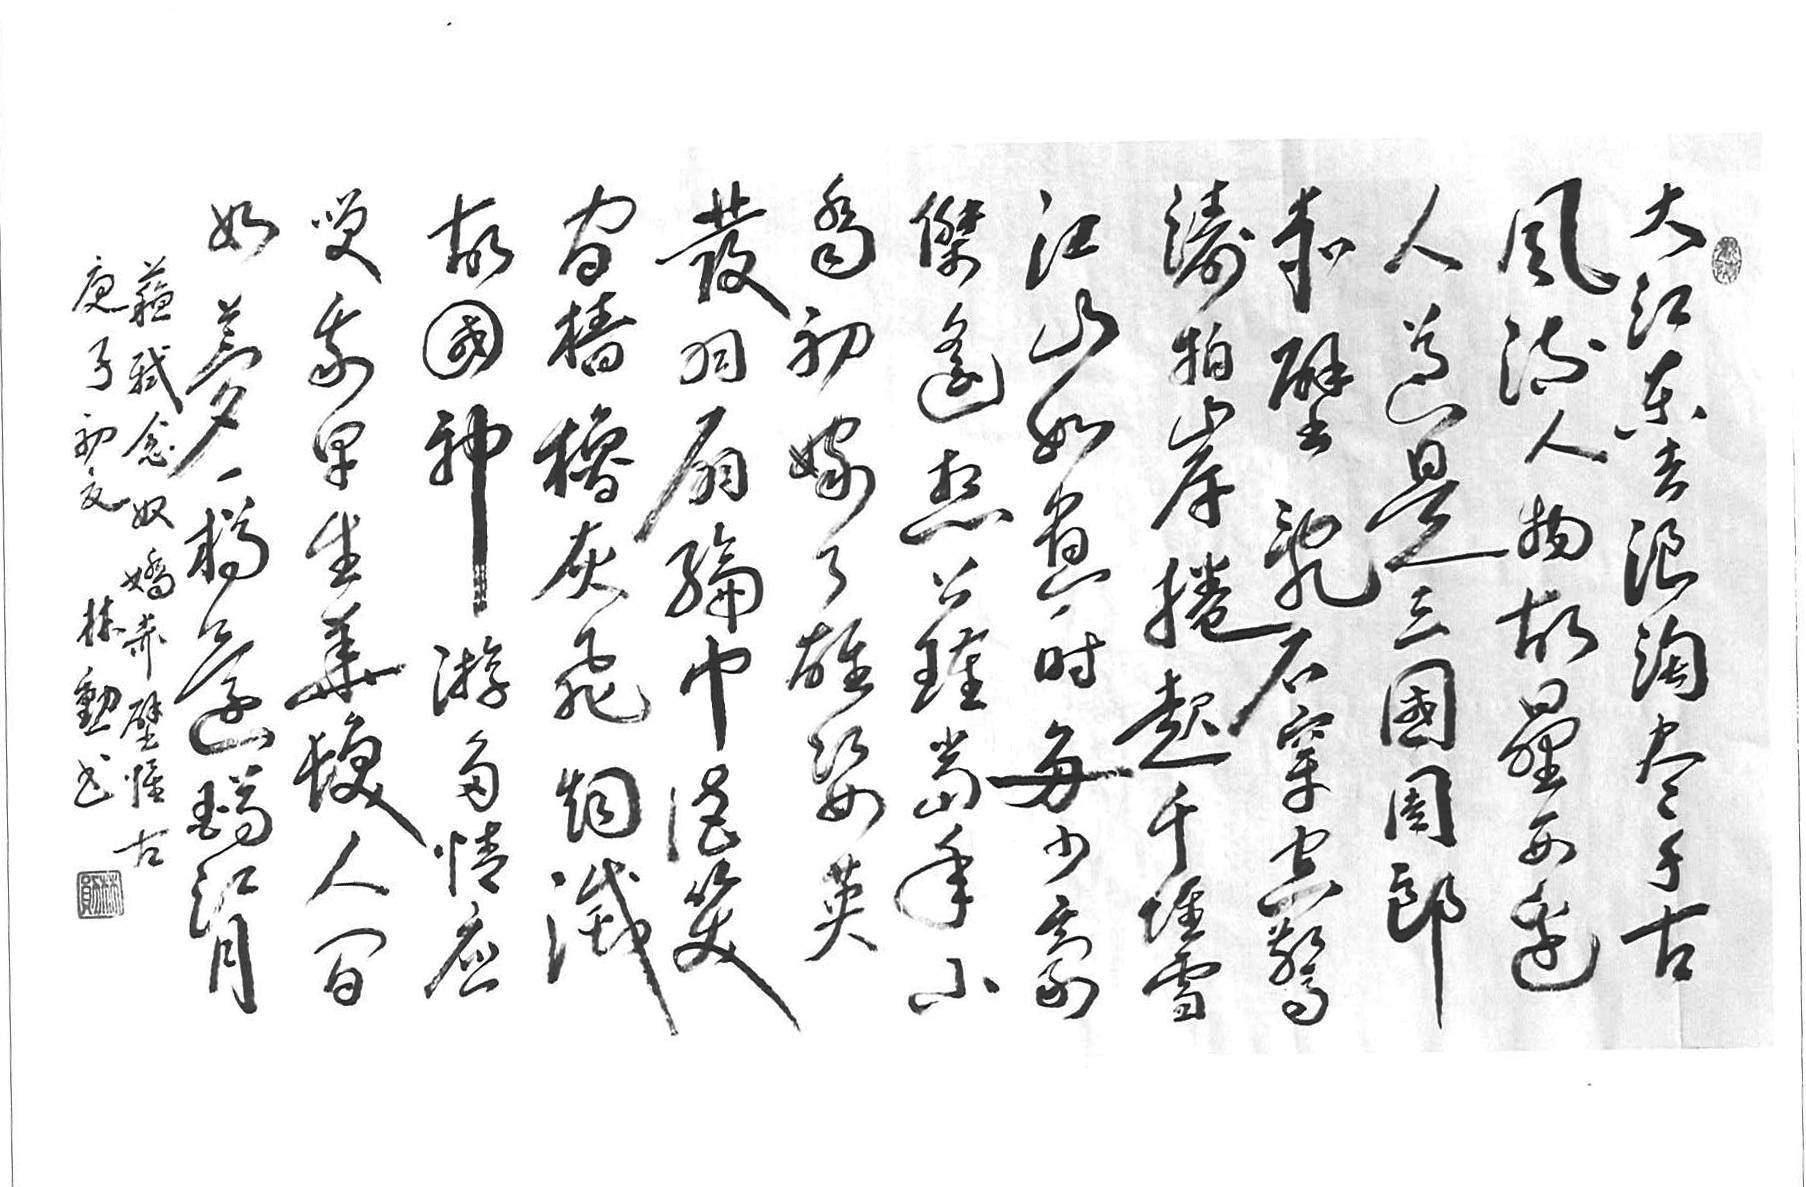 大江东去浪淘尽千古
风流人物故壘西边
人道是三國周郎
赤壁亂石穿空驚
濤拍岸捲起千堆雪
江山如畫一时多少豪
傑遙想公瑾當年小
喬初嫁了雄姿英
發羽扇綸巾談笑
间檣櫓灰飛烟滅
故國神游多情应
笑我早生華髮人间
如夢一樽還酹江月
蘇軾念奴嬌赤壁懷古
庚子初夏 林勳书